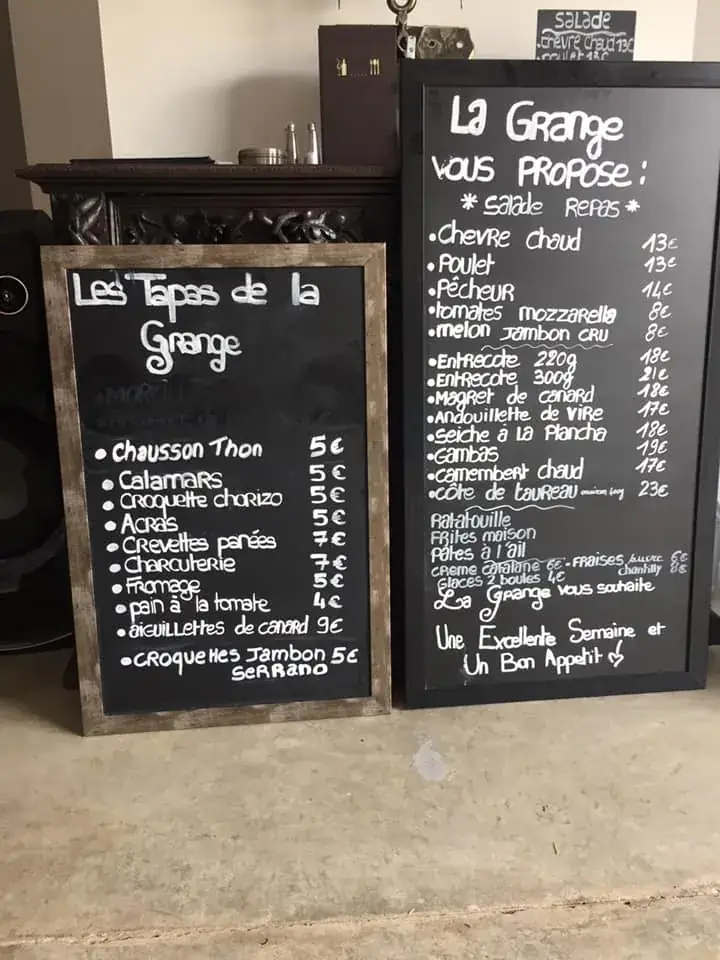 SALADE
.chèvre chaud 13€
poulet 13€
Les Tapas de la
Grange
• Chausson Thon 5€
• Calamars 5€
• Croquette chorizo 5€
• Acras 5€
• Crevettes panées 7€
• Charcuterie 7€
• Fromage 5€
• pain à la tomate 4€
• aiguillettes de canard 9€
• Croquettes Jambon 5€
Serrano
La Grange
vous propose :
* Salade Repas *
• Chevre chaud 13€
• Poulet 13€
• Pêcheur 14€
• tomates mozzarella 8€
• melon Jambon cru 8€
• Entrecote 220g 18€
• Entrecote 300g 21€
• Magret de canard 18€
• Andouillette de Vire 17€
• Seiche à la Plancha 18€
• Gambas 19€
• Camembert chaud 17€
• Côte de taureau 23€
Ratatouille
Frites maison
Pâtes à l'ail
Creme catalane 6€ - Fraises sucre 6€
chantilly 8€
Glaces 2 boules 4€
La Grange vous souhaite
Une Excellente Semaine et
Un Bon Appetit ♡